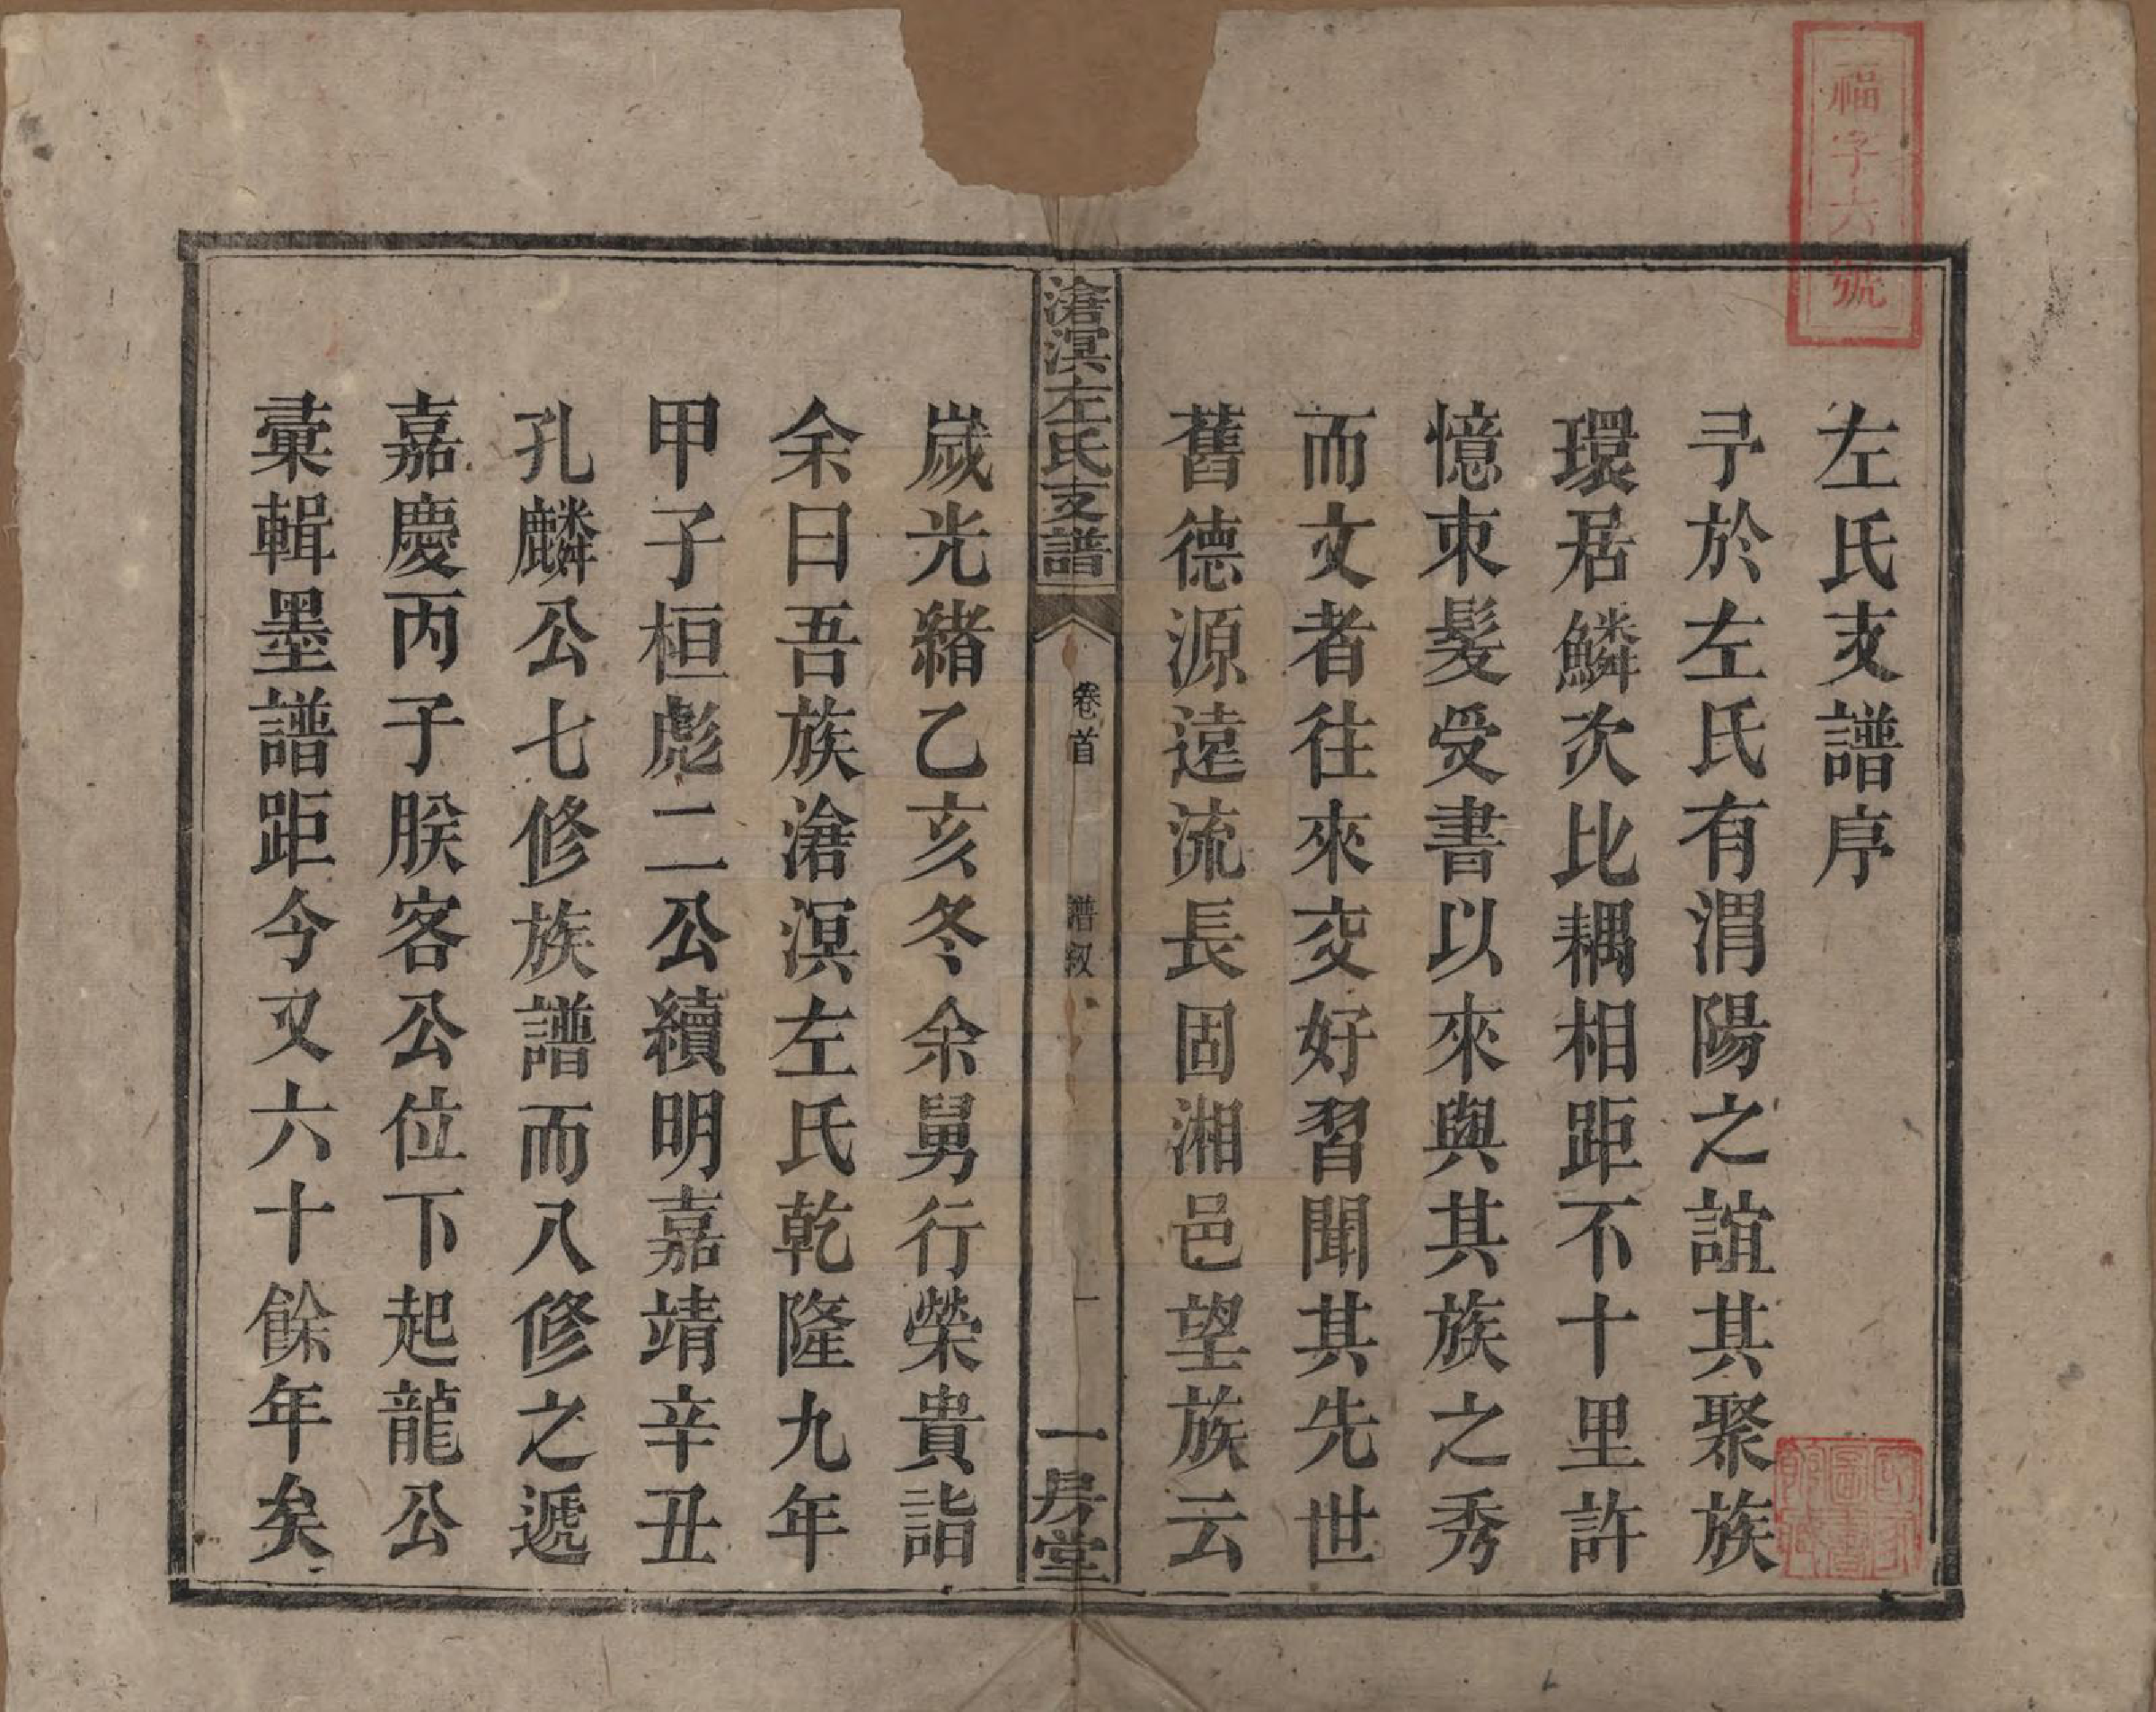 福字六號
左氏支譜序
予於左氏有渭陽之誼其聚族
環居鱗次比耦相距不十里許
憶束髮受書以來與其族之秀
而文者往來交好習聞其先世
舊德源遠流長固湘邑望族云
滄溟左氏支譜
卷首
譜叙
一
一房堂
歲光緒乙亥冬余舅行榮貴詣
余曰吾族滄溟左氏乾隆九年
甲子桓彪二公續明嘉靖辛丑
孔麟公七修族譜而八修之遞
嘉慶丙子朕客公位下起龍公
彙輯墨譜距今又六十餘年矣